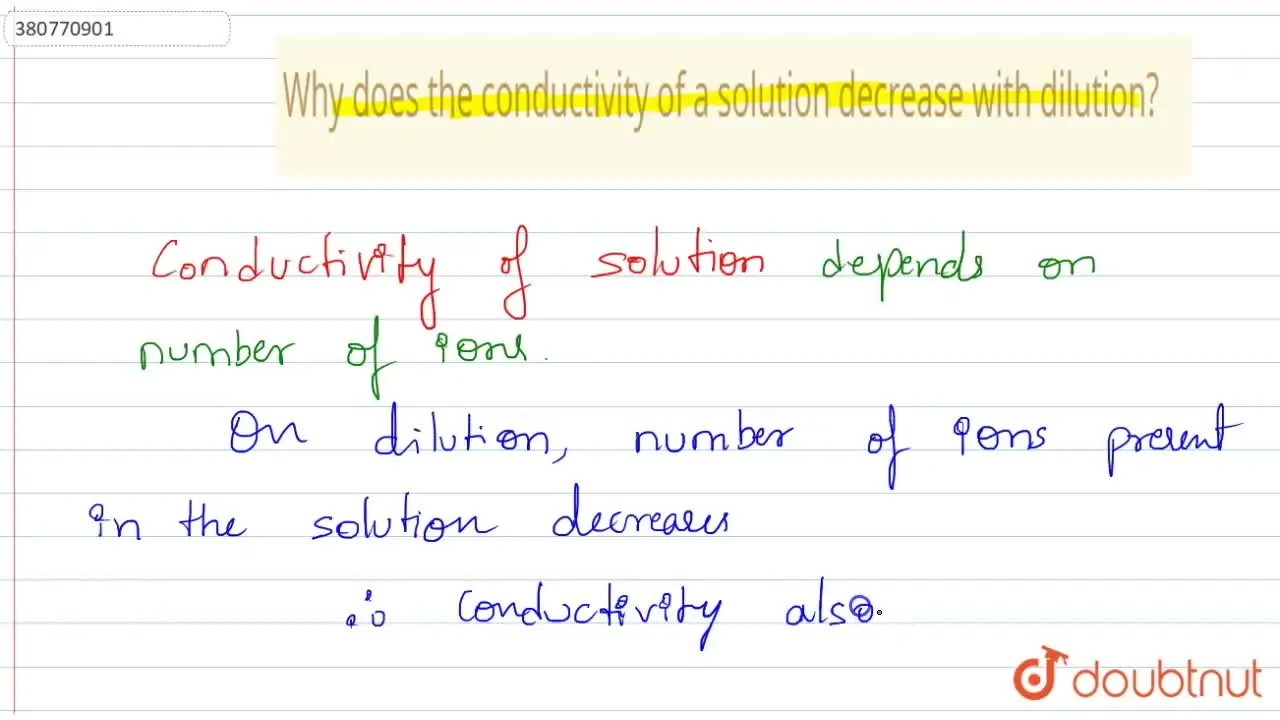 380770901
Why does the conductivity of a solution decrease with dilution?
Conductivity of solution depends on
number of ions.
On dilution, number of ions present
in the solution decreases
∴ Conductivity also
doubtnut